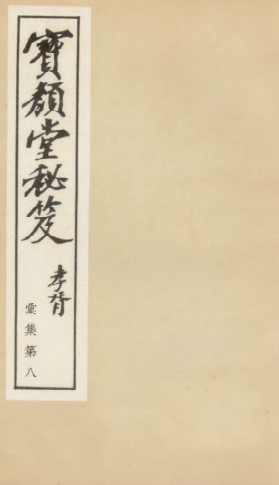 寶顏堂秘笈
孝胥
彙集第八